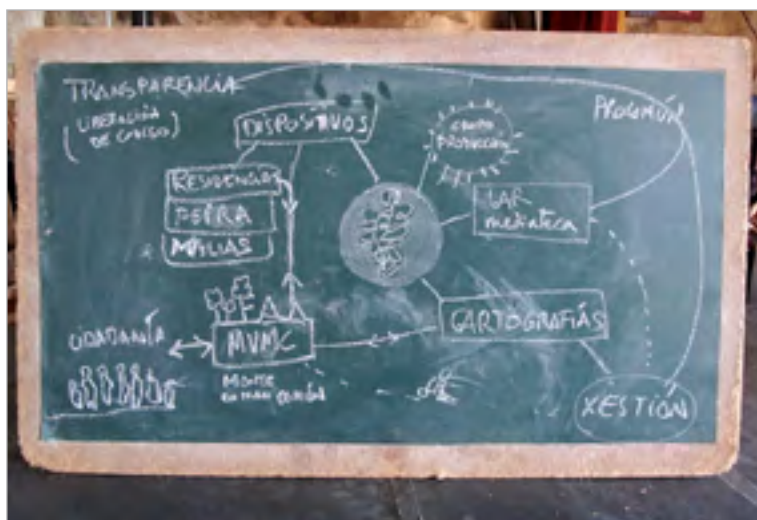 TRANSPARENCIA
(LIBERACIÓN
DE CÓDIGO)
DISPOSITIVOS
PROCOMÚN
RESIDENCIAS
LAR
mediateca
CARTOGRAFÍAS
CIDADANÍA
MVMC
Monte
en man común
XESTIÓN